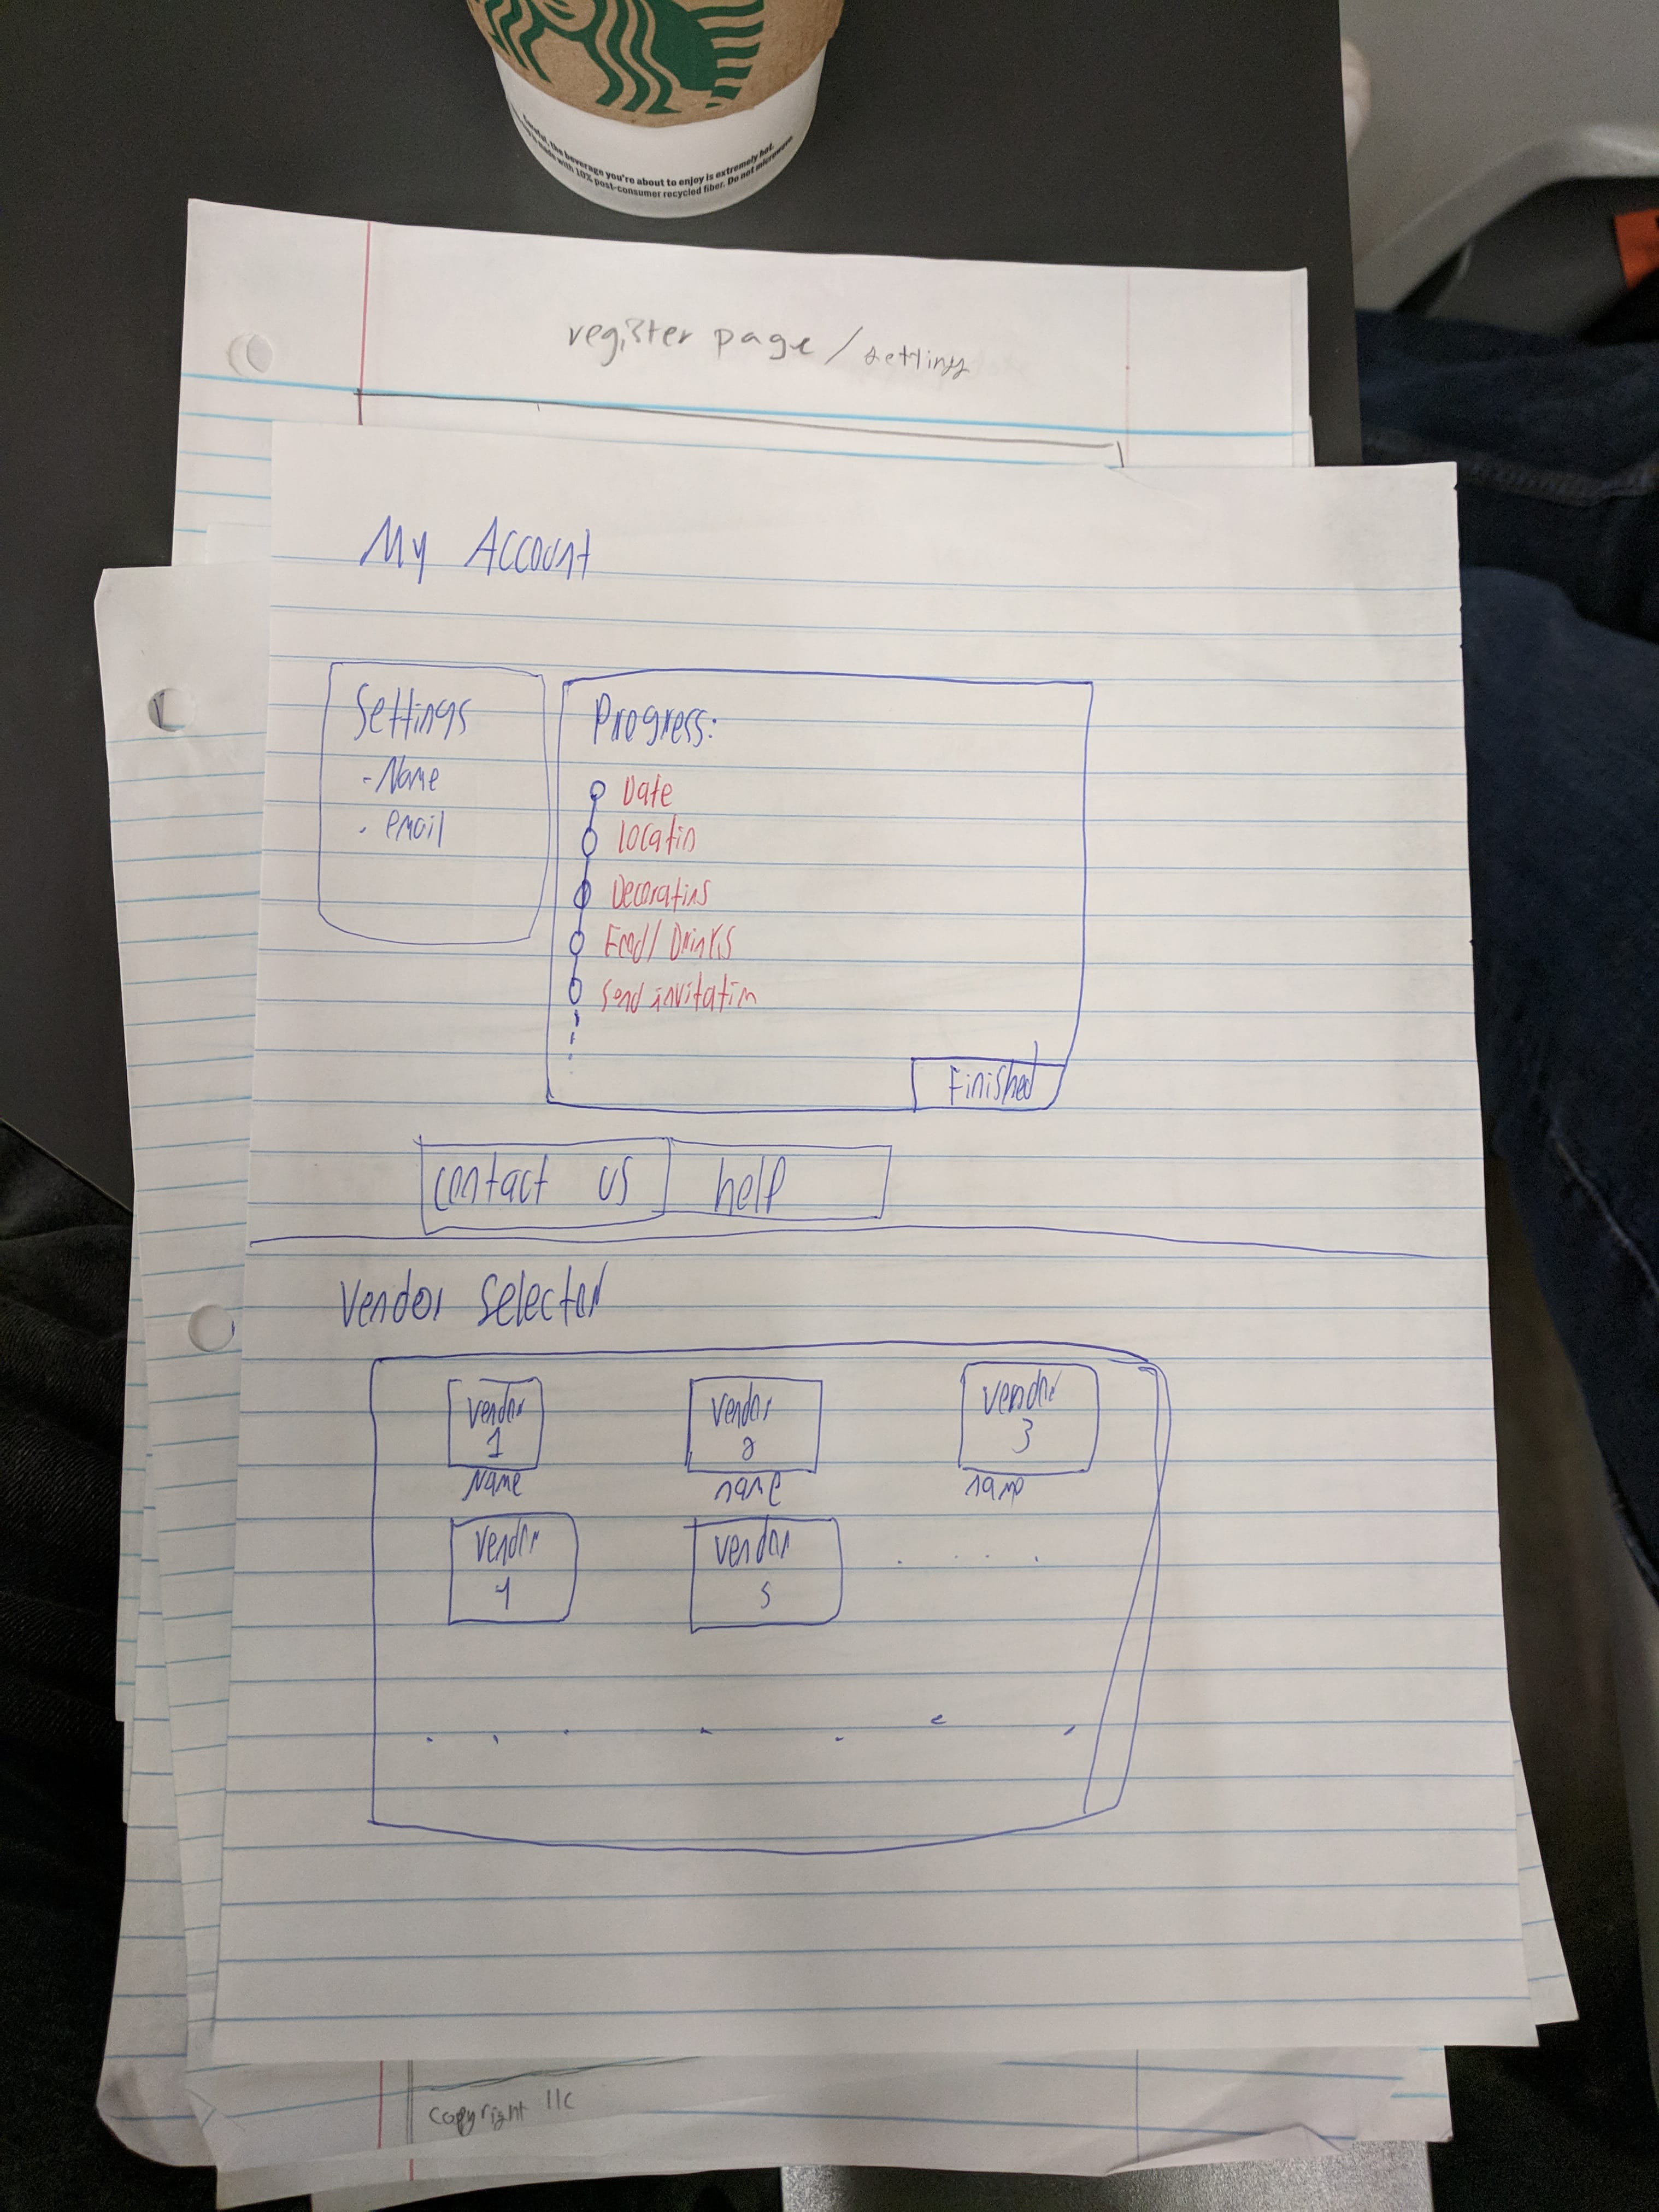 Careful, the beverage you're about to enjoy is extremely hot.
made with 10% post-consumer recycled fiber. Do not microwave
register page / settings
My Account
Settings
- Name
- email
Progress:
Date
Locatin
Decoratins
Food/Drinks
Send invitatin
Finished
contact us
help
Vendor Selector
Vendor
1
Name
Vendor
2
name
Vendor
3
name
Vendor
4
Vendor
5
Copyright llc